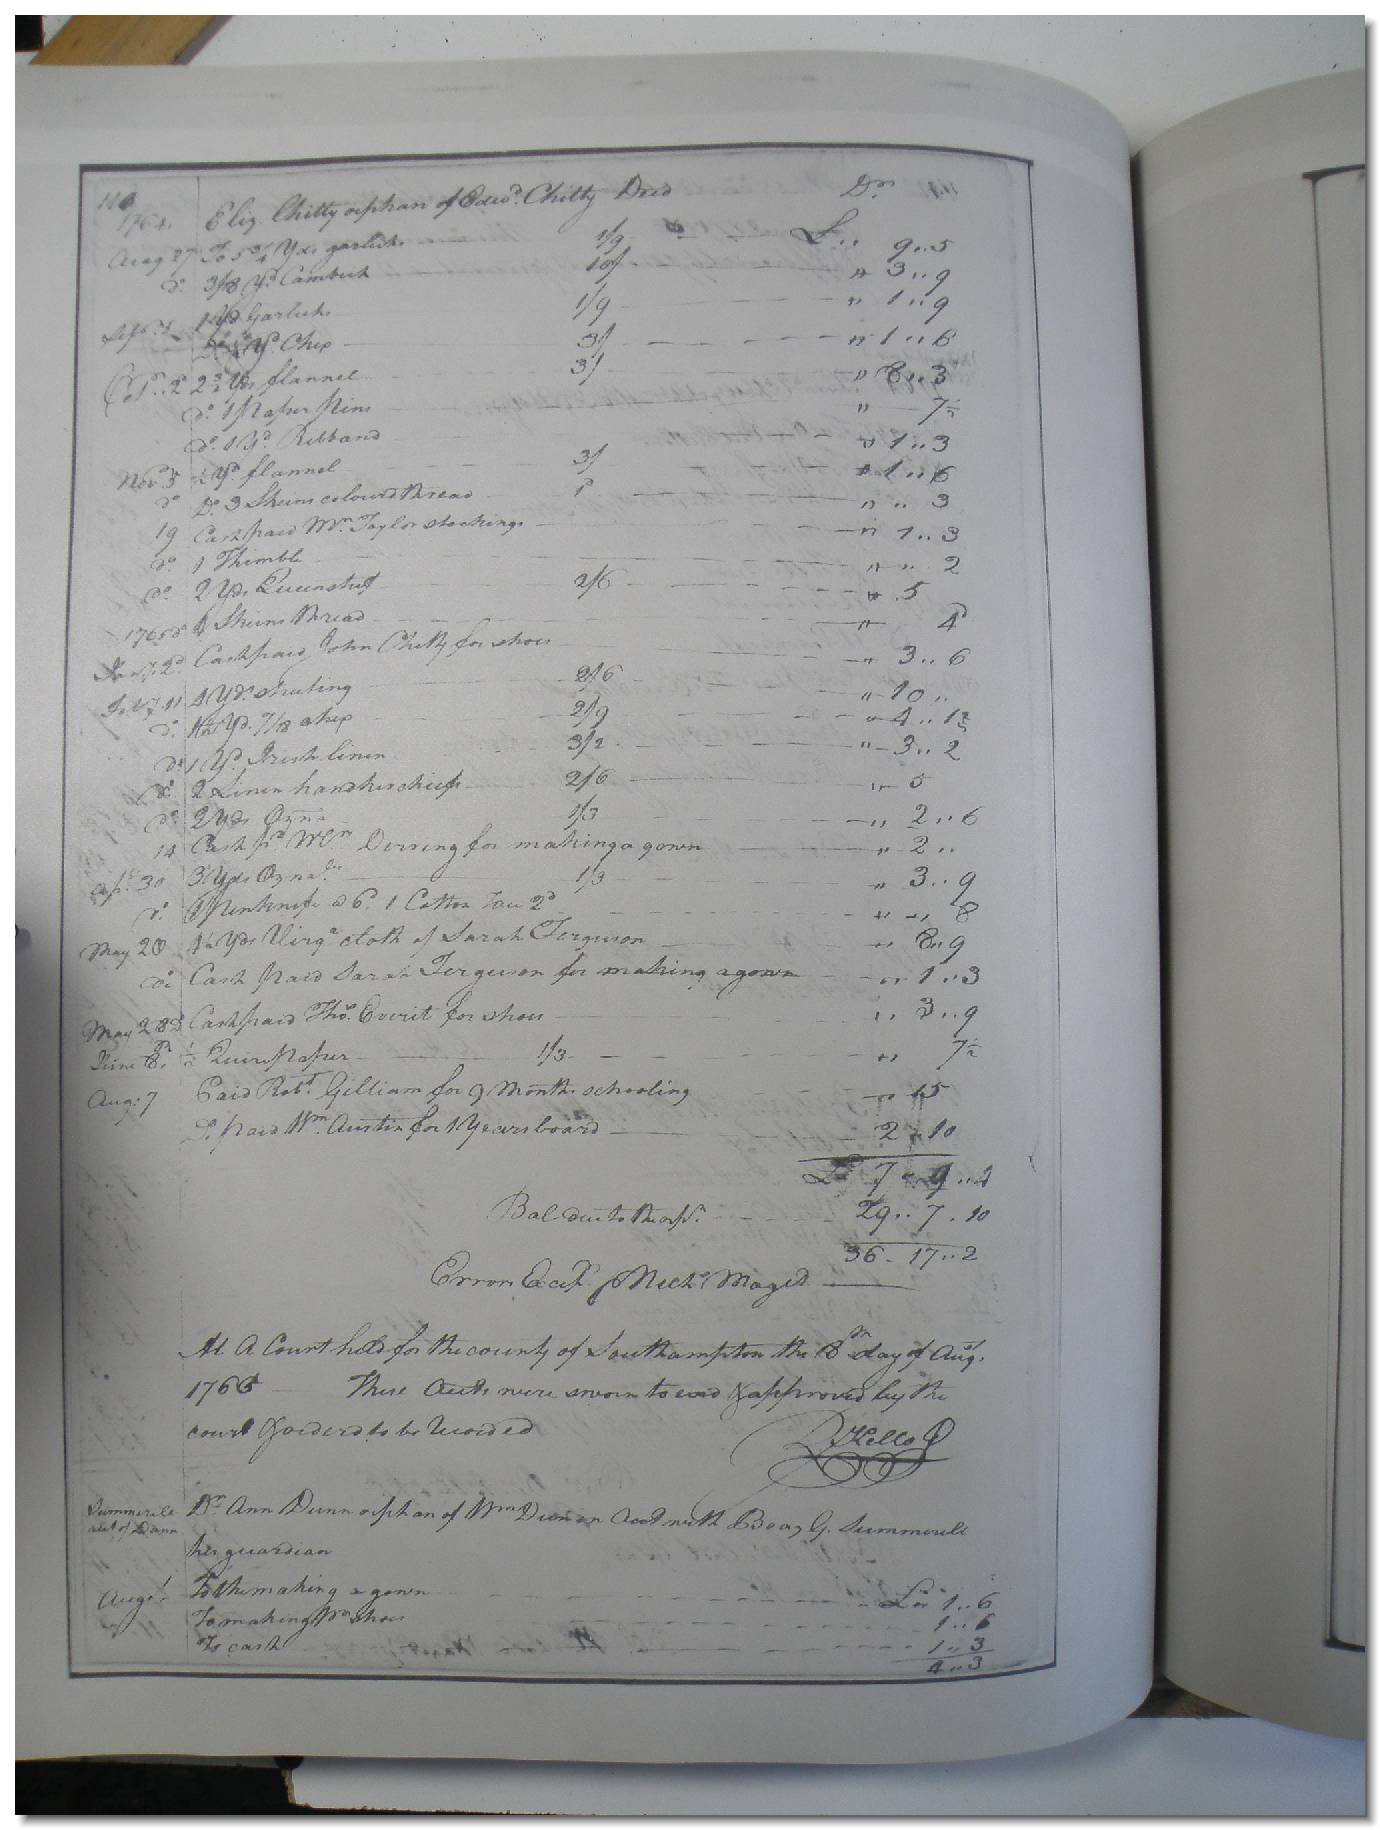 1764. Eliz. Chitty orphan of Edwd. Chitty Decd Dr.
Aug 27 To 5 3/4 Yds garlick 1/9 £ 9..5
do. 3/8 Yd Cambrick 10/ " 3..9
1 Yd Garlick 1/9 " 1..9
Sepr. 5 Yd. Chex 3/ " 1..6
2 3/4 Yds flannel 3/ " 8..3
do. 1 Paper Pins " 7½
do. 1 Yd. Ribband " 1..3
Novr. 5 ½ Yd. flannel 3/ " 1..6
do Do. 3 Skeins colourd thread 1d " " 3
19 Cash paid Mr. Taylor stockings " 1..3
do. 1 Thimble " " 2
do. 2 Yds Queenstuf 2/6 " 5
1765 Skeins thread " 4d
Jany. 2d. Cash paid John Chitty for shoes " 3..6
11 4 Yds. sheeting 2/6 " 10 ..
do. 1½ Yd. 7/8 chex 2/9 " 4..1½
do. 1 Yd. Irish linen 3/2 " 3..2
do. 2 Linen handkerchiefs 2/6 " 5
do. 2 Yds Ozna 1/3 " 2..6
14 Cash pd. Wm Dorring for making a gown " 2..
Apl. 30 3 Yds Ozna. 1/3 " 3..9
do. 1 Penknife a 6d. 1 Cotton 2d " " 8
May 20 Yds Virga cloth of Sarah Ferguson " 8..9
do. Cash paid Sarah Ferguson for making a gown " 1..3
May 28d Cash paid Thos. Everit for shoes " 3..9
June 8. ½ Quire paper 1/3 " 7½
Aug: 7 Paid Robt. Gilliam for 9 Months schooling " 15
Do. paid Wm. Austin for 1 Years board 2 " 10
£ 7 " 9..4
Bal. due to the orp. 29.. 7. 10
36 - 17..2
Errors Excepd. p Nichs. Maget
At A Court held for the county of Southampton the 8th day of Augt.
1765 These Accts were sworn to and & approved by the
court & orderd to be Recorded
R. Kello
Summerell
acct of Dunn
Dr. Ann Dunn orphan of Wm Dunn in Acct with Boaz G. Summerell
her guardian
Augt. To the making a gown £ " 1..6
To making Pr shoes 1..6
To cash 1..3
4..3